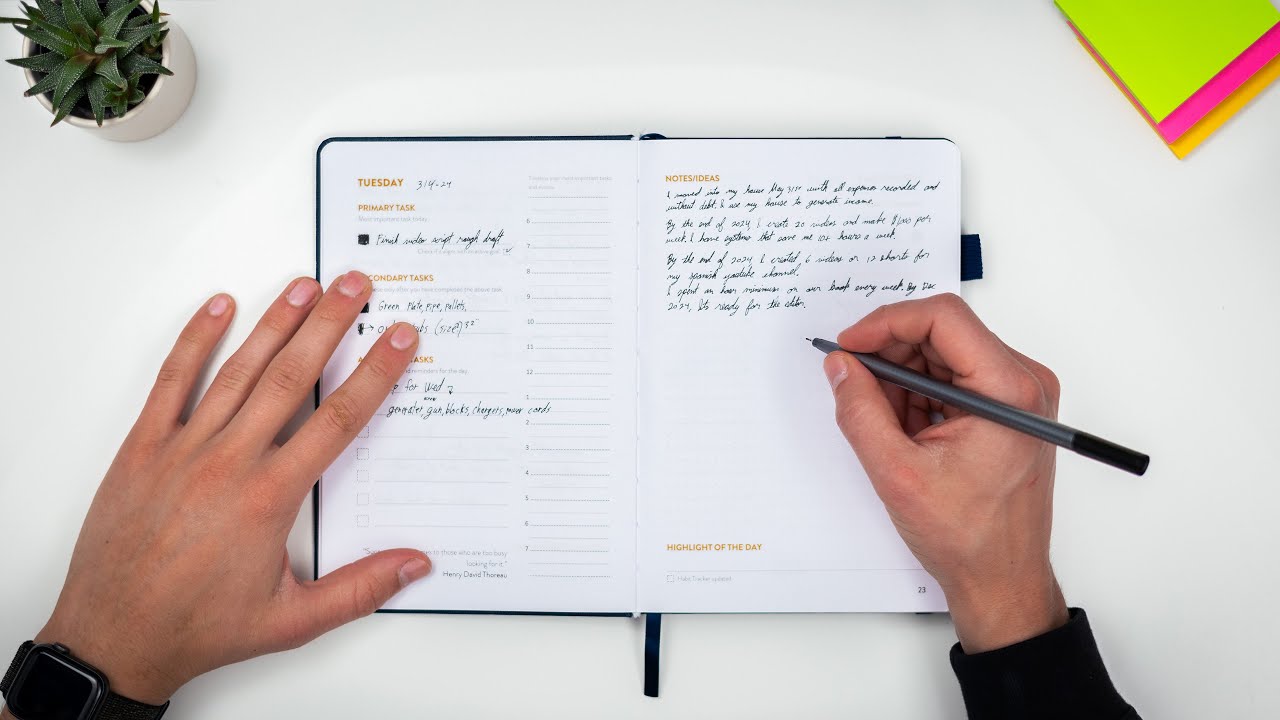 TUESDAY 3/4-24
PRIMARY TASK
Most important task today.
Finish video script rough draft
SECONDARY TASKS
only after you have completed the above task.
Green Plate, pipe, pallets,
(size?)
TASKS
and reminders for the day.
for Wed
generator, gun, blocks, chargers, cards
to those who are too busy
looking for it."
Henry David Thoreau
Timebox your most important tasks
and events.
6
7
8
9
10
11
12
1
2
3
4
5
6
7
NOTES/IDEAS
I moved into my house May 31st with all expenses recorded and
without debt. I use my house to generate income.
By the end of 2024, I create 20 videos and make per
week. I have systems that save me 10+ hours a week.
By the end of 2024, I created 6 videos or 12 shorts for
my Spanish youtube channel.
I spend an hour minimum on our book every week. By Dec
2024, it's ready for the editor.
HIGHLIGHT OF THE DAY
Habit Tracker updated
23